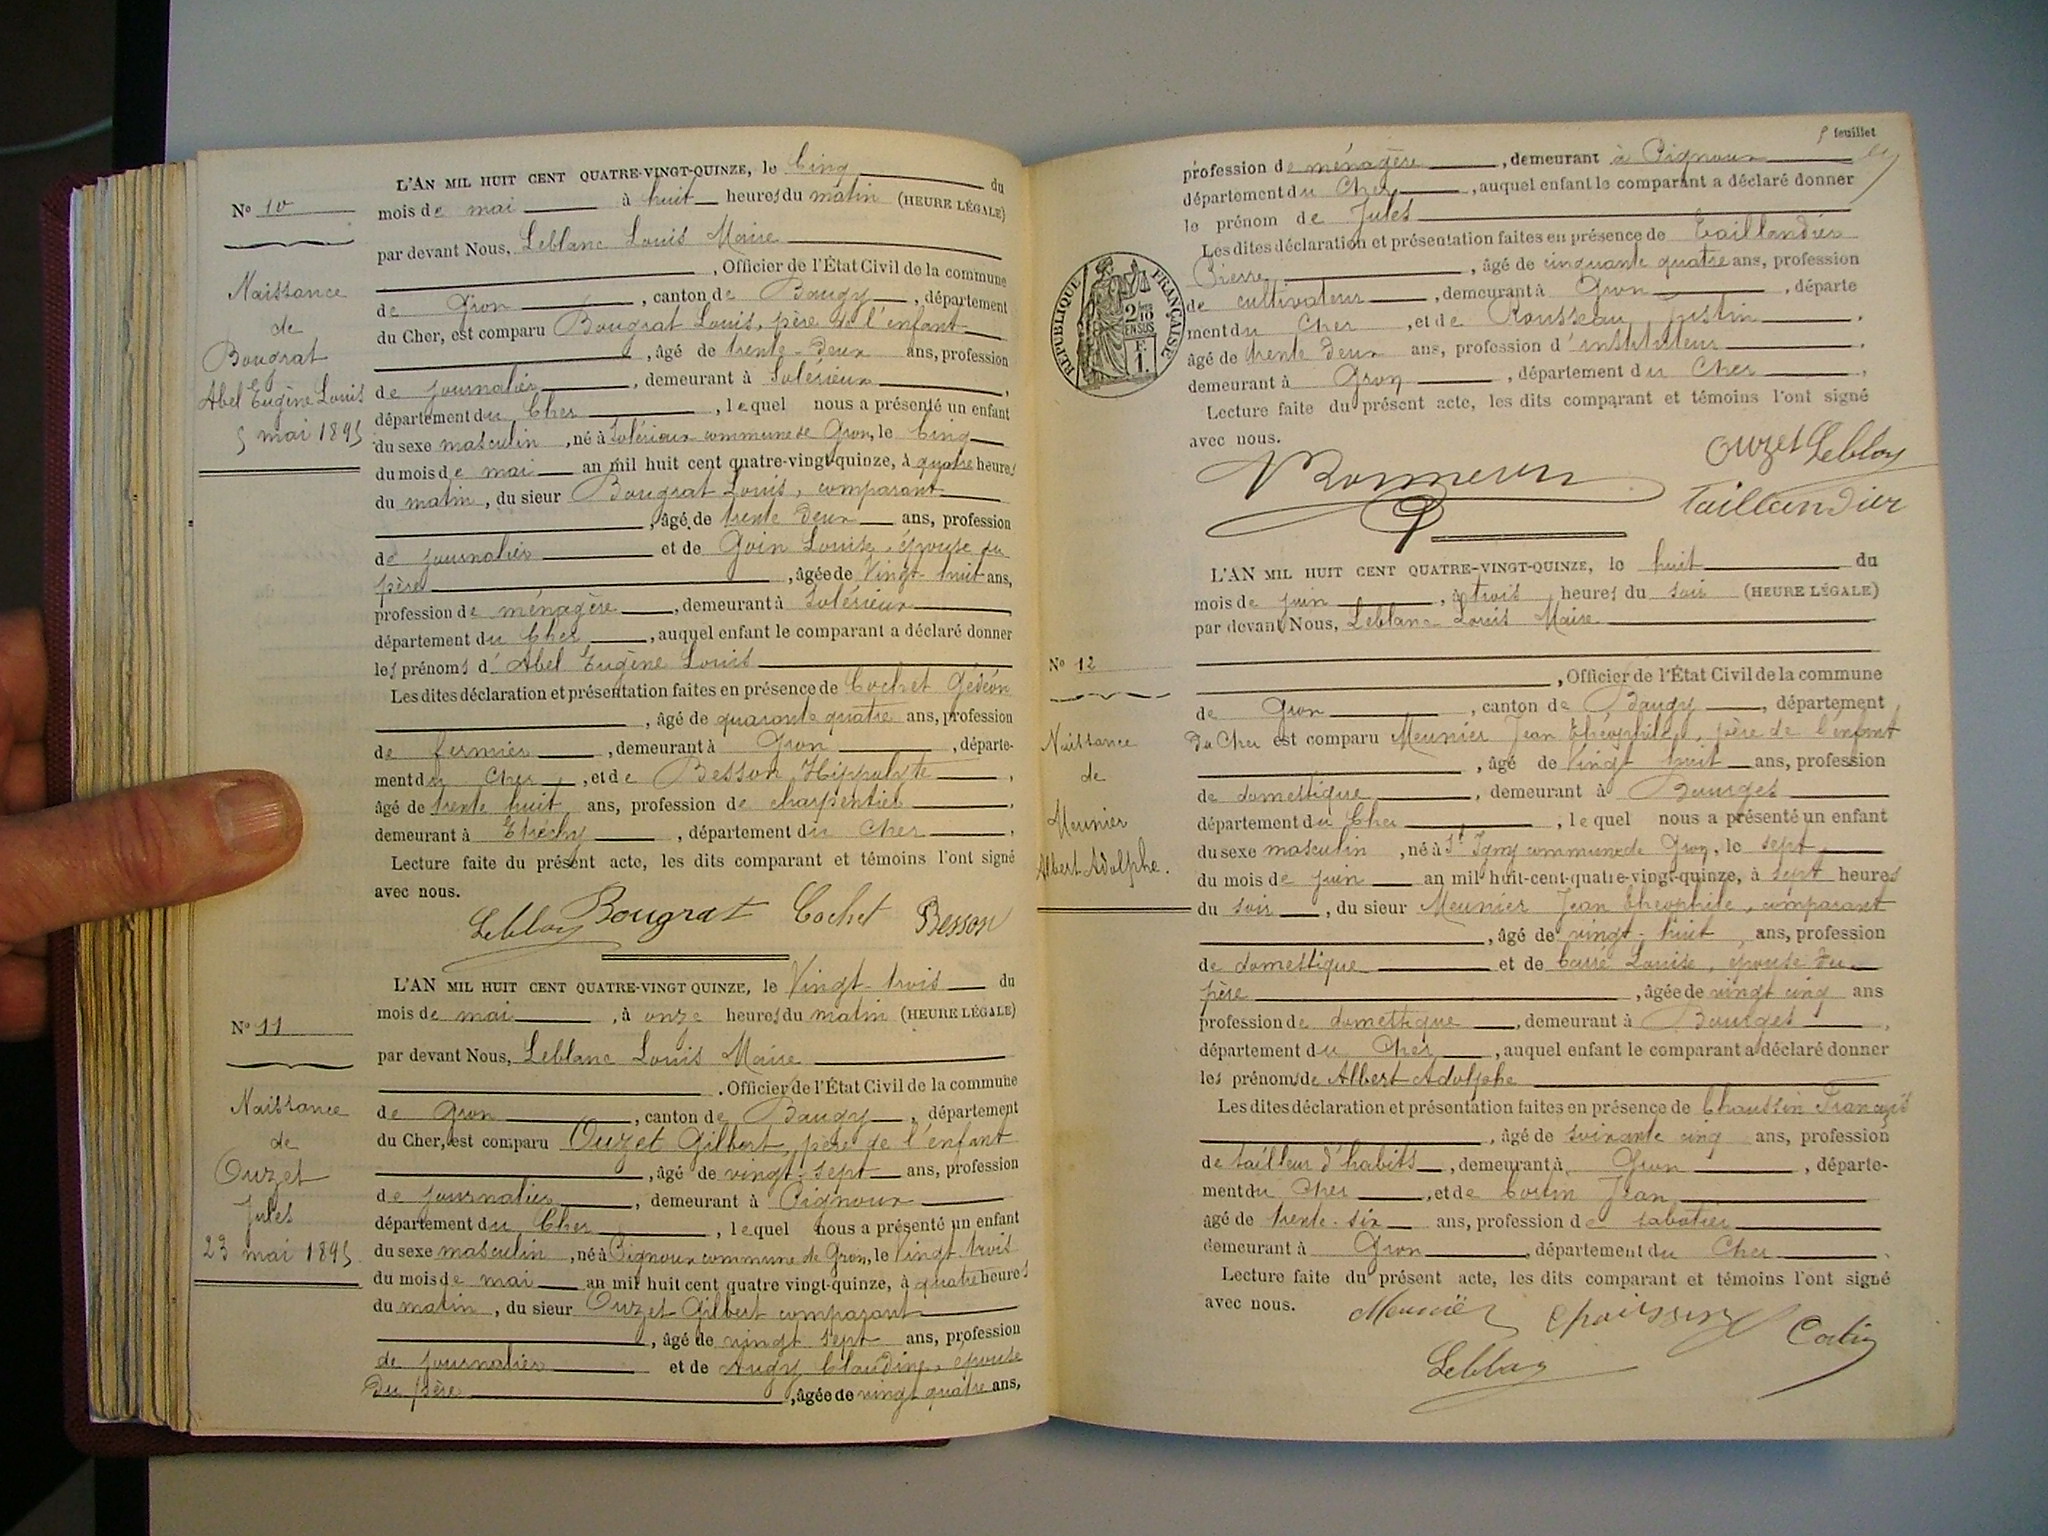 L'AN MIL HUIT CENT QUATRE-VINGT-QUINZE, le Cinq du
No 10
mois de mai à huit heures du matin (HEURE LÉGALE)
par devant Nous, Leblanc Louis Maire
, Officier de l'État Civil de la commune
de Gron, canton de Baugy, département
du Cher, est comparu Bougrat Louis, père de l'enfant
, âgé de trente-deux ans, profession
de journalier, demeurant à Solérieux,
département du Cher, lequel nous a présenté un enfant
du sexe masculin, né à Solérieux commune de Gron, le Cinq
du mois de mai an mil huit cent quatre-vingt-quinze, à quatre heures
du matin, du sieur Bougrat Louis, comparant
, âgé de trente deux ans, profession
de journalier et de Goin Louise, épouse du
père, âgée de Vingt-huit ans,
profession de ménagère, demeurant à Solérieux
département du Cher, auquel enfant le comparant a déclaré donner
les prénoms d'Abel Eugène Louis
Les dites déclaration et présentation faites en présence de Cochet Gédéon
, âgé de quarante quatre ans, profession
de fermier, demeurant à Gron, départe-
ment du Cher, et de Besson Hippolyte,
âgé de trente huit ans, profession de charpentier,
demeurant à Etréchy, département du Cher,
Lecture faite du présent acte, les dits comparant et témoins l'ont signé
avec nous.
Naissance
de
Bougrat
Abel Eugène Louis
5 mai 1895
Bougrat Cochet Besson
L'AN MIL HUIT CENT QUATRE-VINGT QUINZE, le Vingt-trois du
No 11
mois de mai, à onze heures du matin (HEURE LÉGALE)
par devant Nous, Leblanc Louis Maire
. Officier de l'État Civil de la commune
de Gron, canton de Baugy, département
du Cher, est comparu Ouzet Gilbert, père de l'enfant
, âgé de vingt-sept ans, profession
de journalier, demeurant à Pignoux
département du Cher, lequel nous a présenté un enfant
du sexe masculin, né à Pignoux commune de Gron, le Vingt trois
du mois de mai an mil huit cent quatre vingt-quinze, à quatre heures
du matin, du sieur Ouzet Gilbert comparant
, âgé de vingt sept ans, profession
de journalier et de Augy Claudine, épouse
du père, âgée de vingt quatre ans,
Naissance
de
Ouzet
Jules
23 mai 1895.
feuillet
profession de ménagère, demeurant à Pignoux
département du Cher, auquel enfant le comparant a déclaré donner
le prénom de Jules
Les dites déclaration et présentation faites en présence de Taillandier
Pierre, âgé de cinquante quatre ans, profession
de cultivateur, demeurant à Gron, départe
ment du Cher, et de Rousseau Justin,
âgé de trente deux ans, profession d'instituteur,
demeurant à Gron, département du Cher,
Lecture faite du présent acte, les dits comparant et témoins l'ont signé
avec nous.
RÉPUBLIQUE FRANÇAISE
2/10
EN SUS
F.
1.
Ouzet
Taillandier
L'AN MIL HUIT CENT QUATRE-VINGT-QUINZE, le huit du
mois de juin, à trois heures du soir (HEURE LÉGALE)
par devant Nous, Leblanc Louis Maire
No 12
, Officier de l'État Civil de la commune
de Gron, canton de Baugy, département
du Cher est comparu Meunier Jean Théophile, père de l'enfant
, âgé de Vingt huit ans, profession
de domestique, demeurant à Bourges
département du Cher, lequel nous a présenté un enfant
du sexe masculin, né à St Igny commune de Gron, le sept
du mois de juin an mil huit-cent-quatre-vingt-quinze, à sept heures
du soir, du sieur Meunier Jean Théophile, comparant
, âgé de vingt-huit ans, profession
de domestique et de Carré Louise, épouse du
père, âgée de vingt cinq ans
profession de domestique, demeurant à Bourges,
département du Cher, auquel enfant le comparant a déclaré donner
les prénoms de Albert Adolphe
Les dites déclaration et présentation faites en présence de Chaussin François
, âgé de soixante cinq ans, profession
de tailleur d'habits, demeurant à Gron, départe-
ment du Cher, et de Jean
âgé de trente-six ans, profession de sabotier
demeurant à Gron, département du Cher.
Lecture faite du présent acte, les dits comparant et témoins l'ont signé
avec nous.
Naissance
de
Meunier
Albert Adolphe.
Meunier